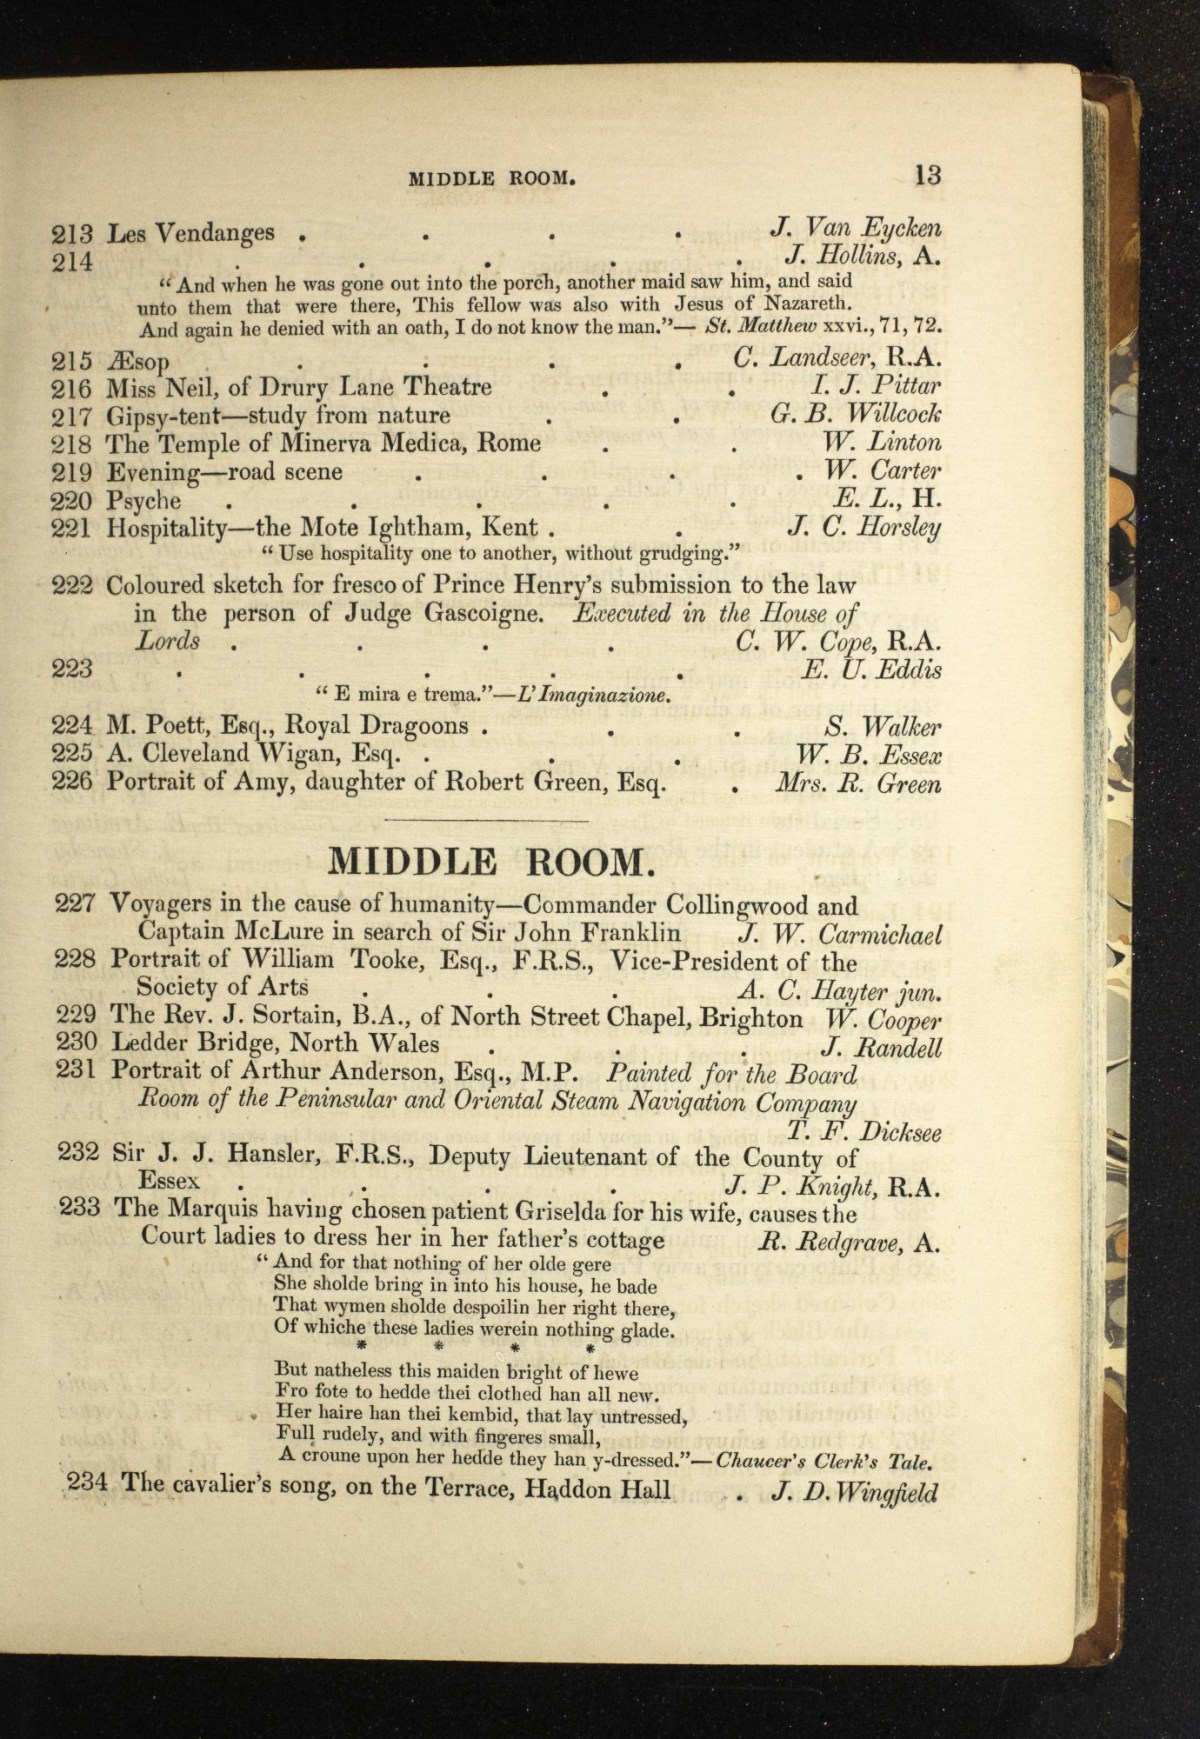 MIDDLE ROOM. 13
213 Les Vendanges . . . . J. Van Eycken
214 . . . . . J. Hollins, A.
“And when he was gone out into the porch, another maid saw him, and said
unto them that were there, This fellow was also with Jesus of Nazareth.
And again he denied with an oath, I do not know the man.”— St. Matthew xxvi., 71, 72.
215 Æsop . . . . C. Landseer, R.A.
216 Miss Neil, of Drury Lane Theatre . . I. J. Pittar
217 Gipsy-tent—study from nature . . G. B. Willcock
218 The Temple of Minerva Medica, Rome . . W. Linton
219 Evening—road scene . . . . W. Carter
220 Psyche . . . . . E. L., H.
221 Hospitality—the Mote Ightham, Kent . . J. C. Horsley
“Use hospitality one to another, without grudging.”
222 Coloured sketch for fresco of Prince Henry’s submission to the law
in the person of Judge Gascoigne. Executed in the House of
Lords . . . . C. W. Cope, R.A.
223 . . . . . E. U. Eddis
“E mira e trema.”—L’Imaginazione.
224 M. Poett, Esq., Royal Dragoons . . . S. Walker
225 A. Cleveland Wigan, Esq. . . . W. B. Essex
226 Portrait of Amy, daughter of Robert Green, Esq. . Mrs. R. Green
MIDDLE ROOM.
227 Voyagers in the cause of humanity—Commander Collingwood and
Captain McLure in search of Sir John Franklin J. W. Carmichael
228 Portrait of William Tooke, Esq., F.R.S., Vice-President of the
Society of Arts . . . A. C. Hayter jun.
229 The Rev. J. Sortain, B.A., of North Street Chapel, Brighton W. Cooper
230 Ledder Bridge, North Wales . . . J. Randell
231 Portrait of Arthur Anderson, Esq., M.P. Painted for the Board
Room of the Peninsular and Oriental Steam Navigation Company
T. F. Dicksee
232 Sir J. J. Hansler, F.R.S., Deputy Lieutenant of the County of
Essex . . . . J. P. Knight, R.A.
233 The Marquis having chosen patient Griselda for his wife, causes the
Court ladies to dress her in her father’s cottage R. Redgrave, A.
“And for that nothing of her olde gere
She sholde bring in into his house, he bade
That wymen sholde despoilin her right there,
Of whiche these ladies werein nothing glade.
* * * *
But natheless this maiden bright of hewe
Fro fote to hedde thei clothed han all new.
Her haire han thei kembid, that lay untressed,
Full rudely, and with fingeres small,
A croune upon her hedde they han y-dressed.”—Chaucer’s Clerk’s Tale.
234 The cavalier’s song, on the Terrace, Haddon Hall . J. D. Wingfield